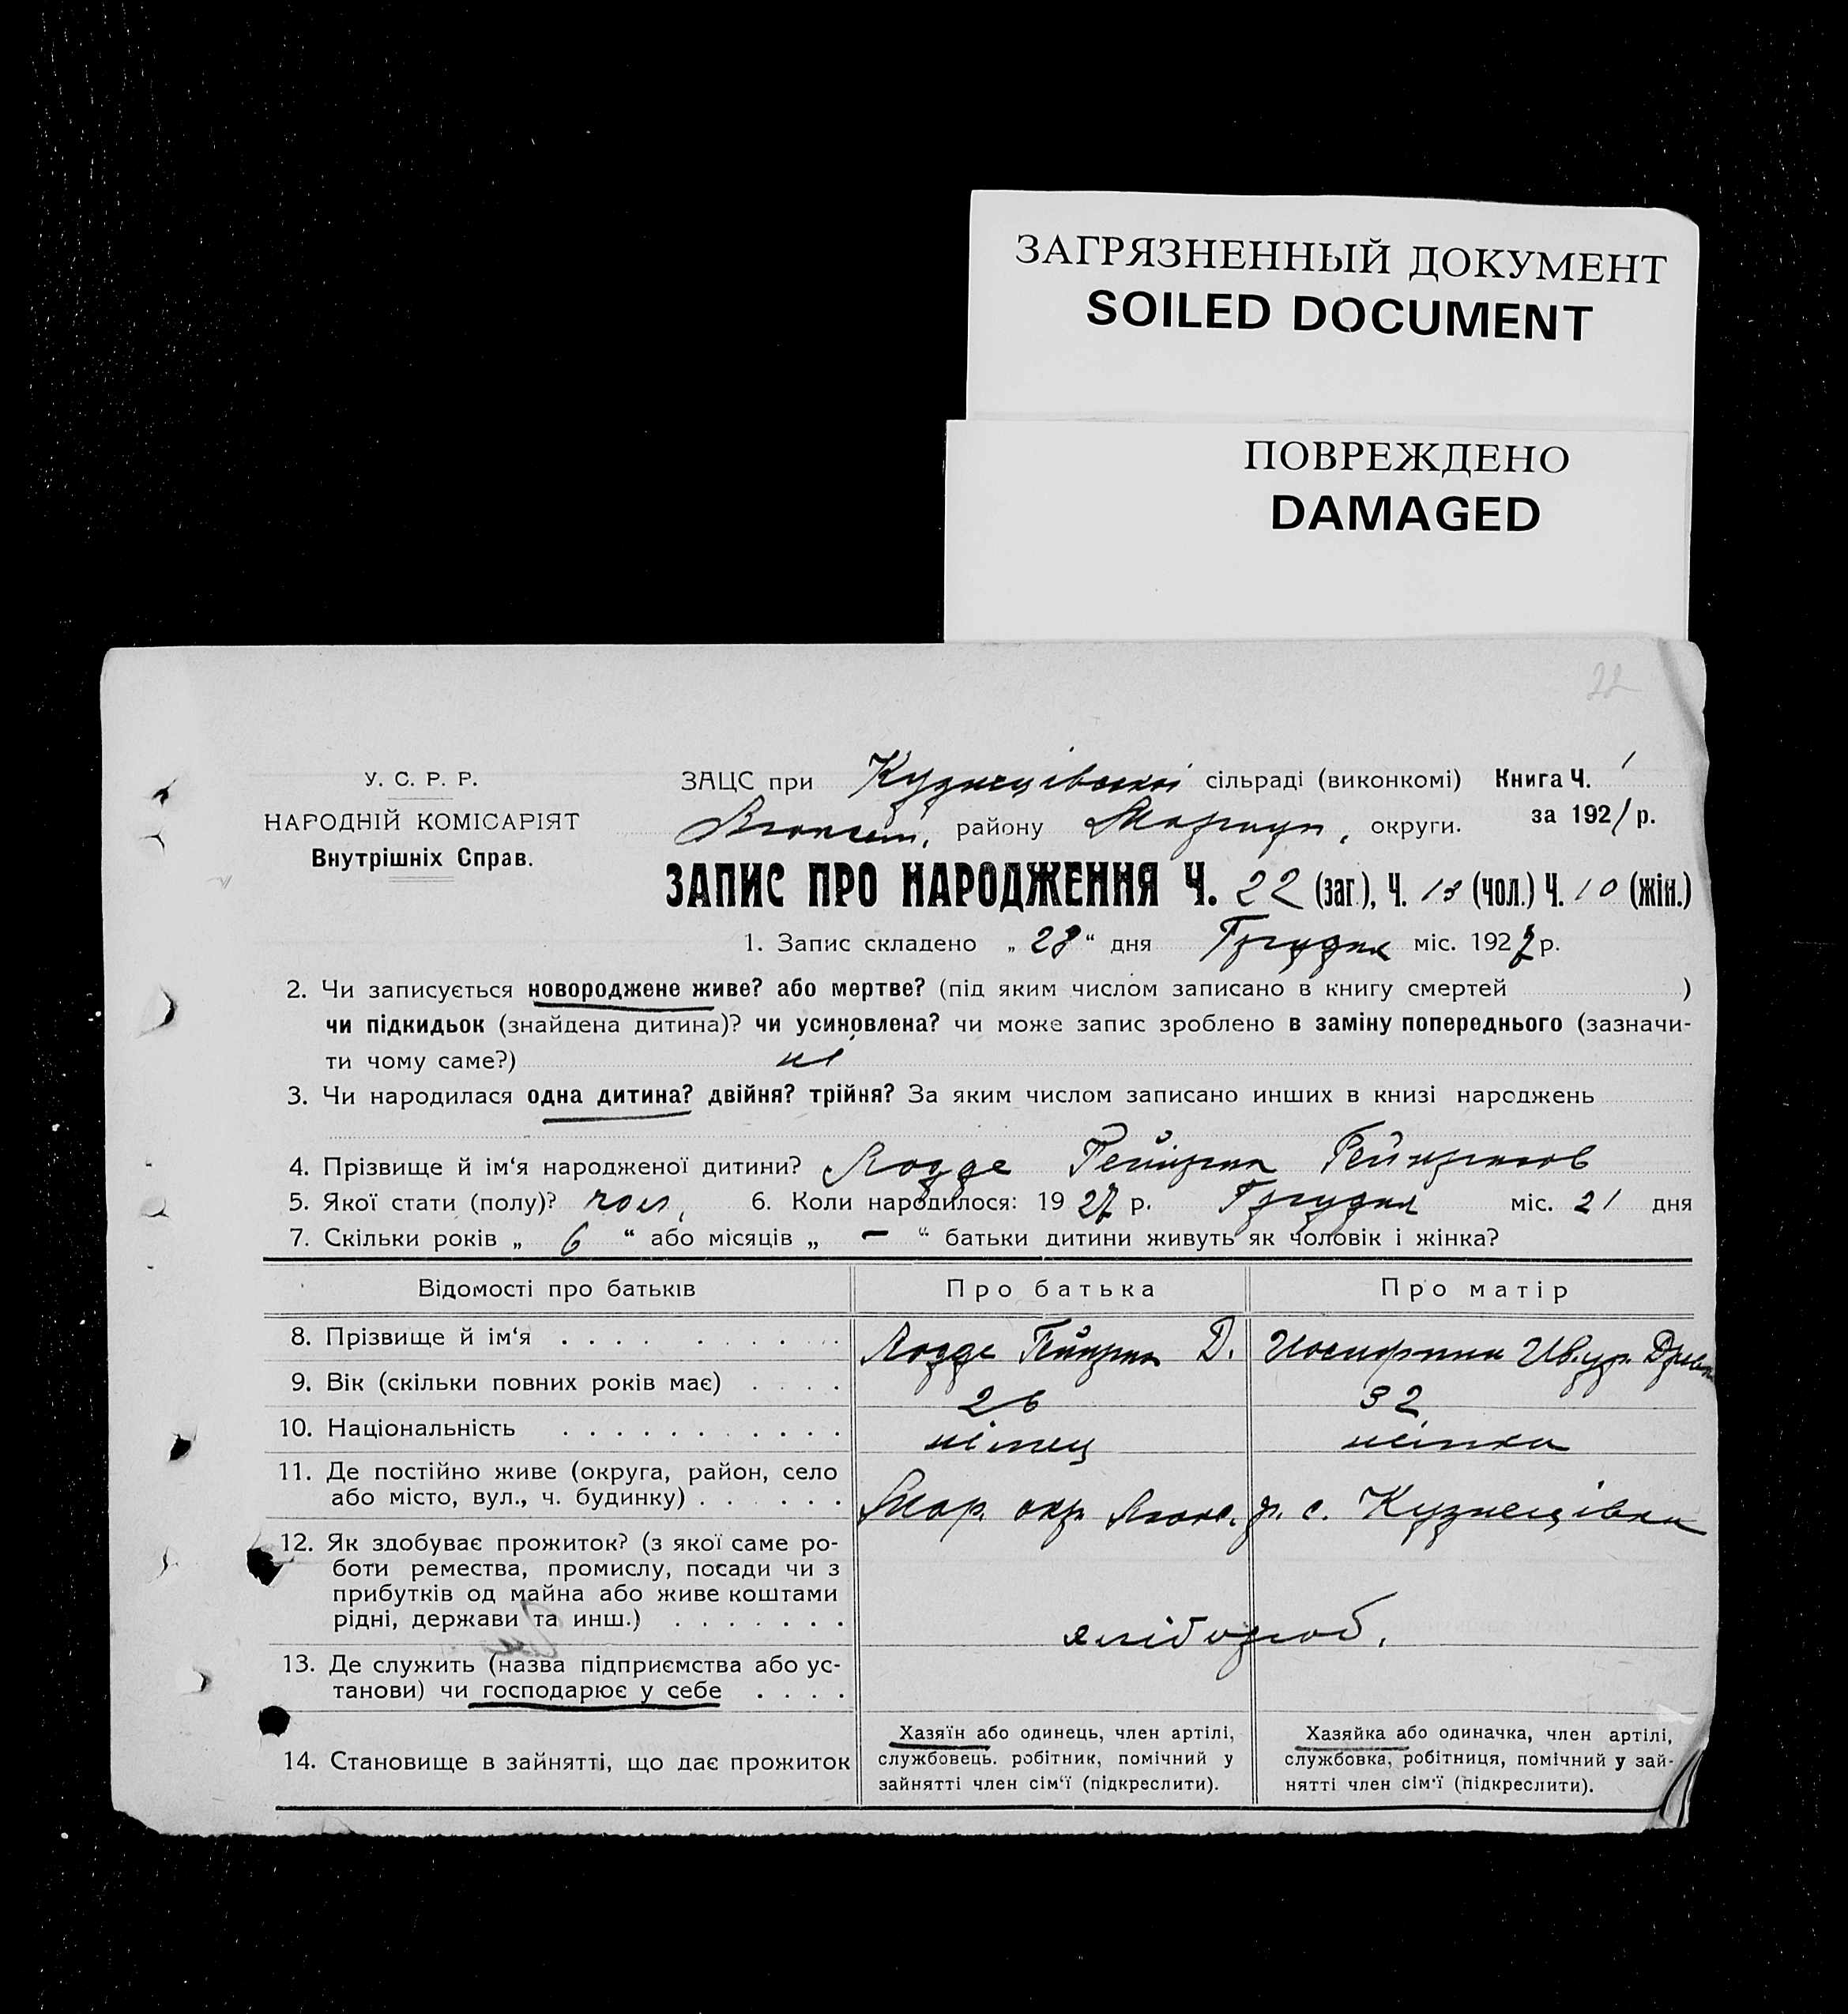 ЗАГРЯЗНЕННЫЙ ДОКУМЕНТ
SOILED DOCUMENT
ПОВРЕЖДЕНО
DAMAGED
22
У. С. Р. Р.
НАРОДНІЙ КОМІСАРІЯТ
Внутрішніх Справ.
ЗАЦС при Кузнецівській сільраді (виконкомі) Книга Ч. 1
району Маріуп. округи. за 192 р.
ЗАПИС ПРО НАРОДЖЕННЯ Ч. 22 (заг.), Ч. 13 (чол.) Ч. 10 (жін.)
1. Запис складено „ 28 “ дня Грудня міс. 1927 р.
2. Чи записується новороджене живе? або мертве? (під яким числом записано в книгу смертей )
чи підкидьок (знайдена дитина)? чи усиновлена? чи може запис зроблено в заміну попереднього (зазначи-
ти чому саме?) ні
3. Чи народилася одна дитина? двійня? трійня? За яким числом записано инших в книзі народжень
4. Прізвище й ім‘я народженої дитини? Гейнрих Гейнрихов
5. Якої стати (полу)? чол. 6. Коли народилося: 1927 р. Грудня міс. 21 дня
7. Скільки років „ 6 “ або місяців „ — “ батьки дитини живуть як чоловік і жінка?
Відомості про батьків Про батька Про матір
8. Прізвище й ім‘я . . . . . . . . . . Гейнрих Д. Иосифина Ив. ур.
9. Вік (скільки повних років має) . . . . 26 32
10. Національність . . . . . . . . . . . німець німка
11. Де постійно живе (округа, район, село
або місто, вул., ч. будинку) . . . . . . Мар. окр. р. с. Кузнецівка
12. Як здобуває прожиток? (з якої саме ро-
боти ремества, промислу, посади чи з
прибутків од майна або живе коштами
рідні, держави та инш.) . . . . . . . хлібороб.
13. Де служить (назва підприємства або ус-
танови) чи господарює у себе . . . .
14. Становище в зайнятті, що дає прожиток
Хазяїн або одинець, член артілі,
службовець. робітник, помічний у
зайнятті член сім‘ї (підкреслити).
Хазяйка або одиначка, член артілі,
службовка, робітниця, помічний у зай-
нятті член сім‘ї (підкреслити).